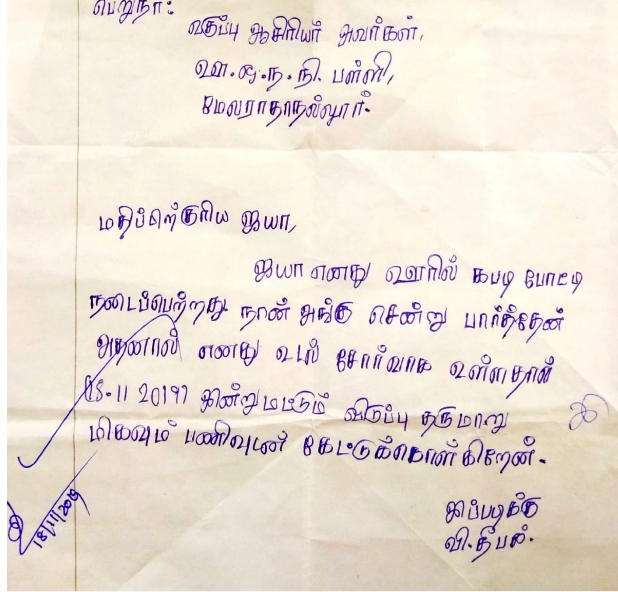 பெறுநர்:
வகுப்பு ஆசிரியர் அவர்கள்,
ஊ.ஒ.ந.நி. பள்ளி,
மேலராதாநல்லூர்.
மதிப்பிற்குரிய ஐயா,
ஐயா எனது ஊரில் கபடி போட்டி
நடைப்பெற்றது நான் அங்கு சென்று பார்த்தேன்
அதனால் எனது உடல் சோர்வாக உள்ளதால்
(18.11.2019) இன்று மட்டும் விடுப்பு தருமாறு
மிகவும் பணிவுடன் கேட்டுக்கொள்கிறேன்.
18/11/2019
இப்படிக்கு
வி.தீபக்.